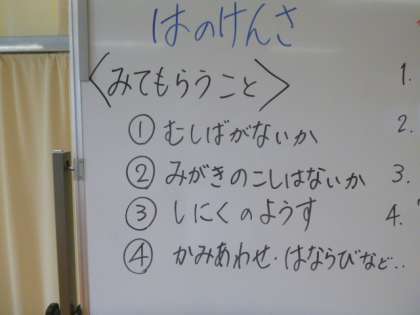 はのけんさ
〈みてもらうこと〉
① むしばがないか
② みがきのこしはないか
③ しにくのようす
④ かみあわせ・はならびなど‥
1.
2.
3.
4.